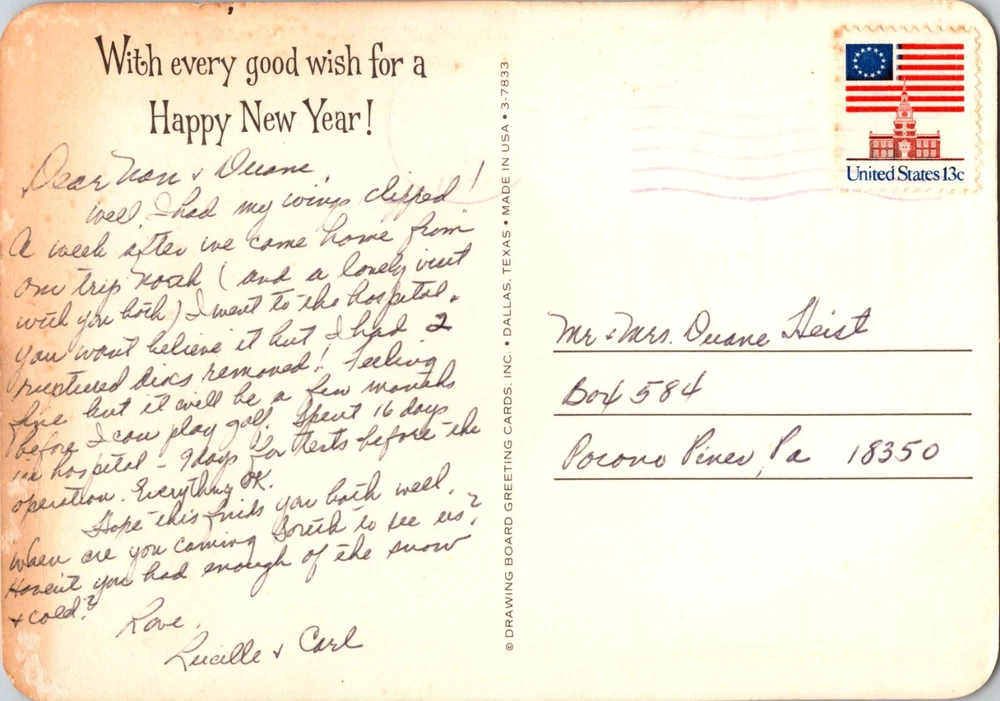 With every good wish for a
Happy New Year!
Dear Nan & Duane,
Well I had my wings clipped!
A week after we came home from
our trip North (and a lovely visit
with you both) I went to the hospital.
You wont believe it but I had 2
ruptured discs removed! Feeling
fine but it will be a few months
before I can play golf. Spent 16 days
in hospital - 9 days for tests before the
operation. Everything OK.
Hope this finds you both well.
When are you coming South to see us?
Haven't you had enough of the snow
& cold?
Love,
Lucille & Carl
© DRAWING BOARD GREETING CARDS, INC. • DALLAS, TEXAS • MADE IN USA • 3-7833
United States 13c
Mr. & Mrs. Duane Heist
Box 584
Pocono Pines, Pa 18350